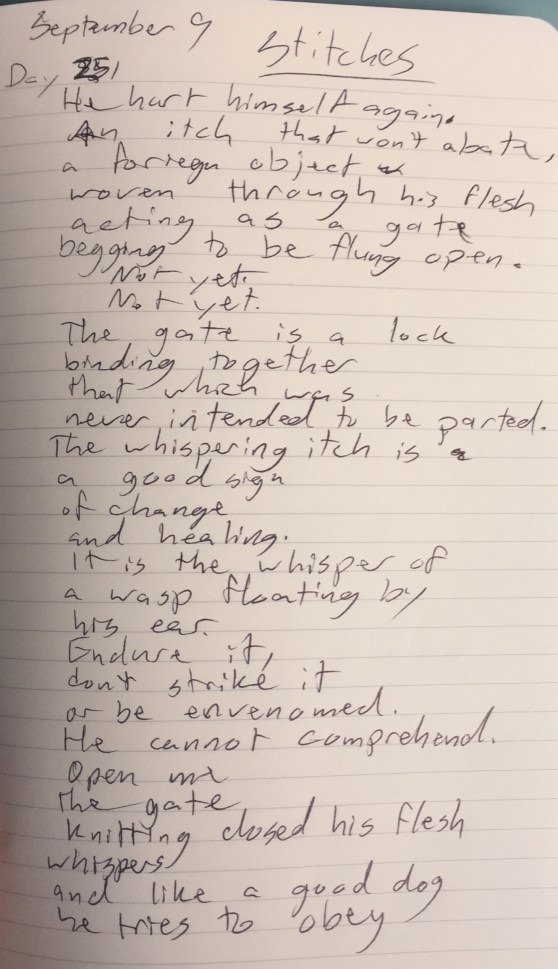 September 9
Stitches
Day 251
He hurt himself again.
An itch that won't abate,
a forriegn object
woven through his flesh
acting as a gate
begging to be flung open.
Not yet.
Not yet.
The gate is a lock
binding together
that which was
never intended to be parted.
The whispering itch is
a good sign
of change
and healing.
It is the whisper of
a wasp floating by
his ear.
Endure it,
don't strike it
or be envenomed.
He cannot comprehend.
Open me
The gate
knitting closed his flesh
whispers
and like a good dog
he tries to obey